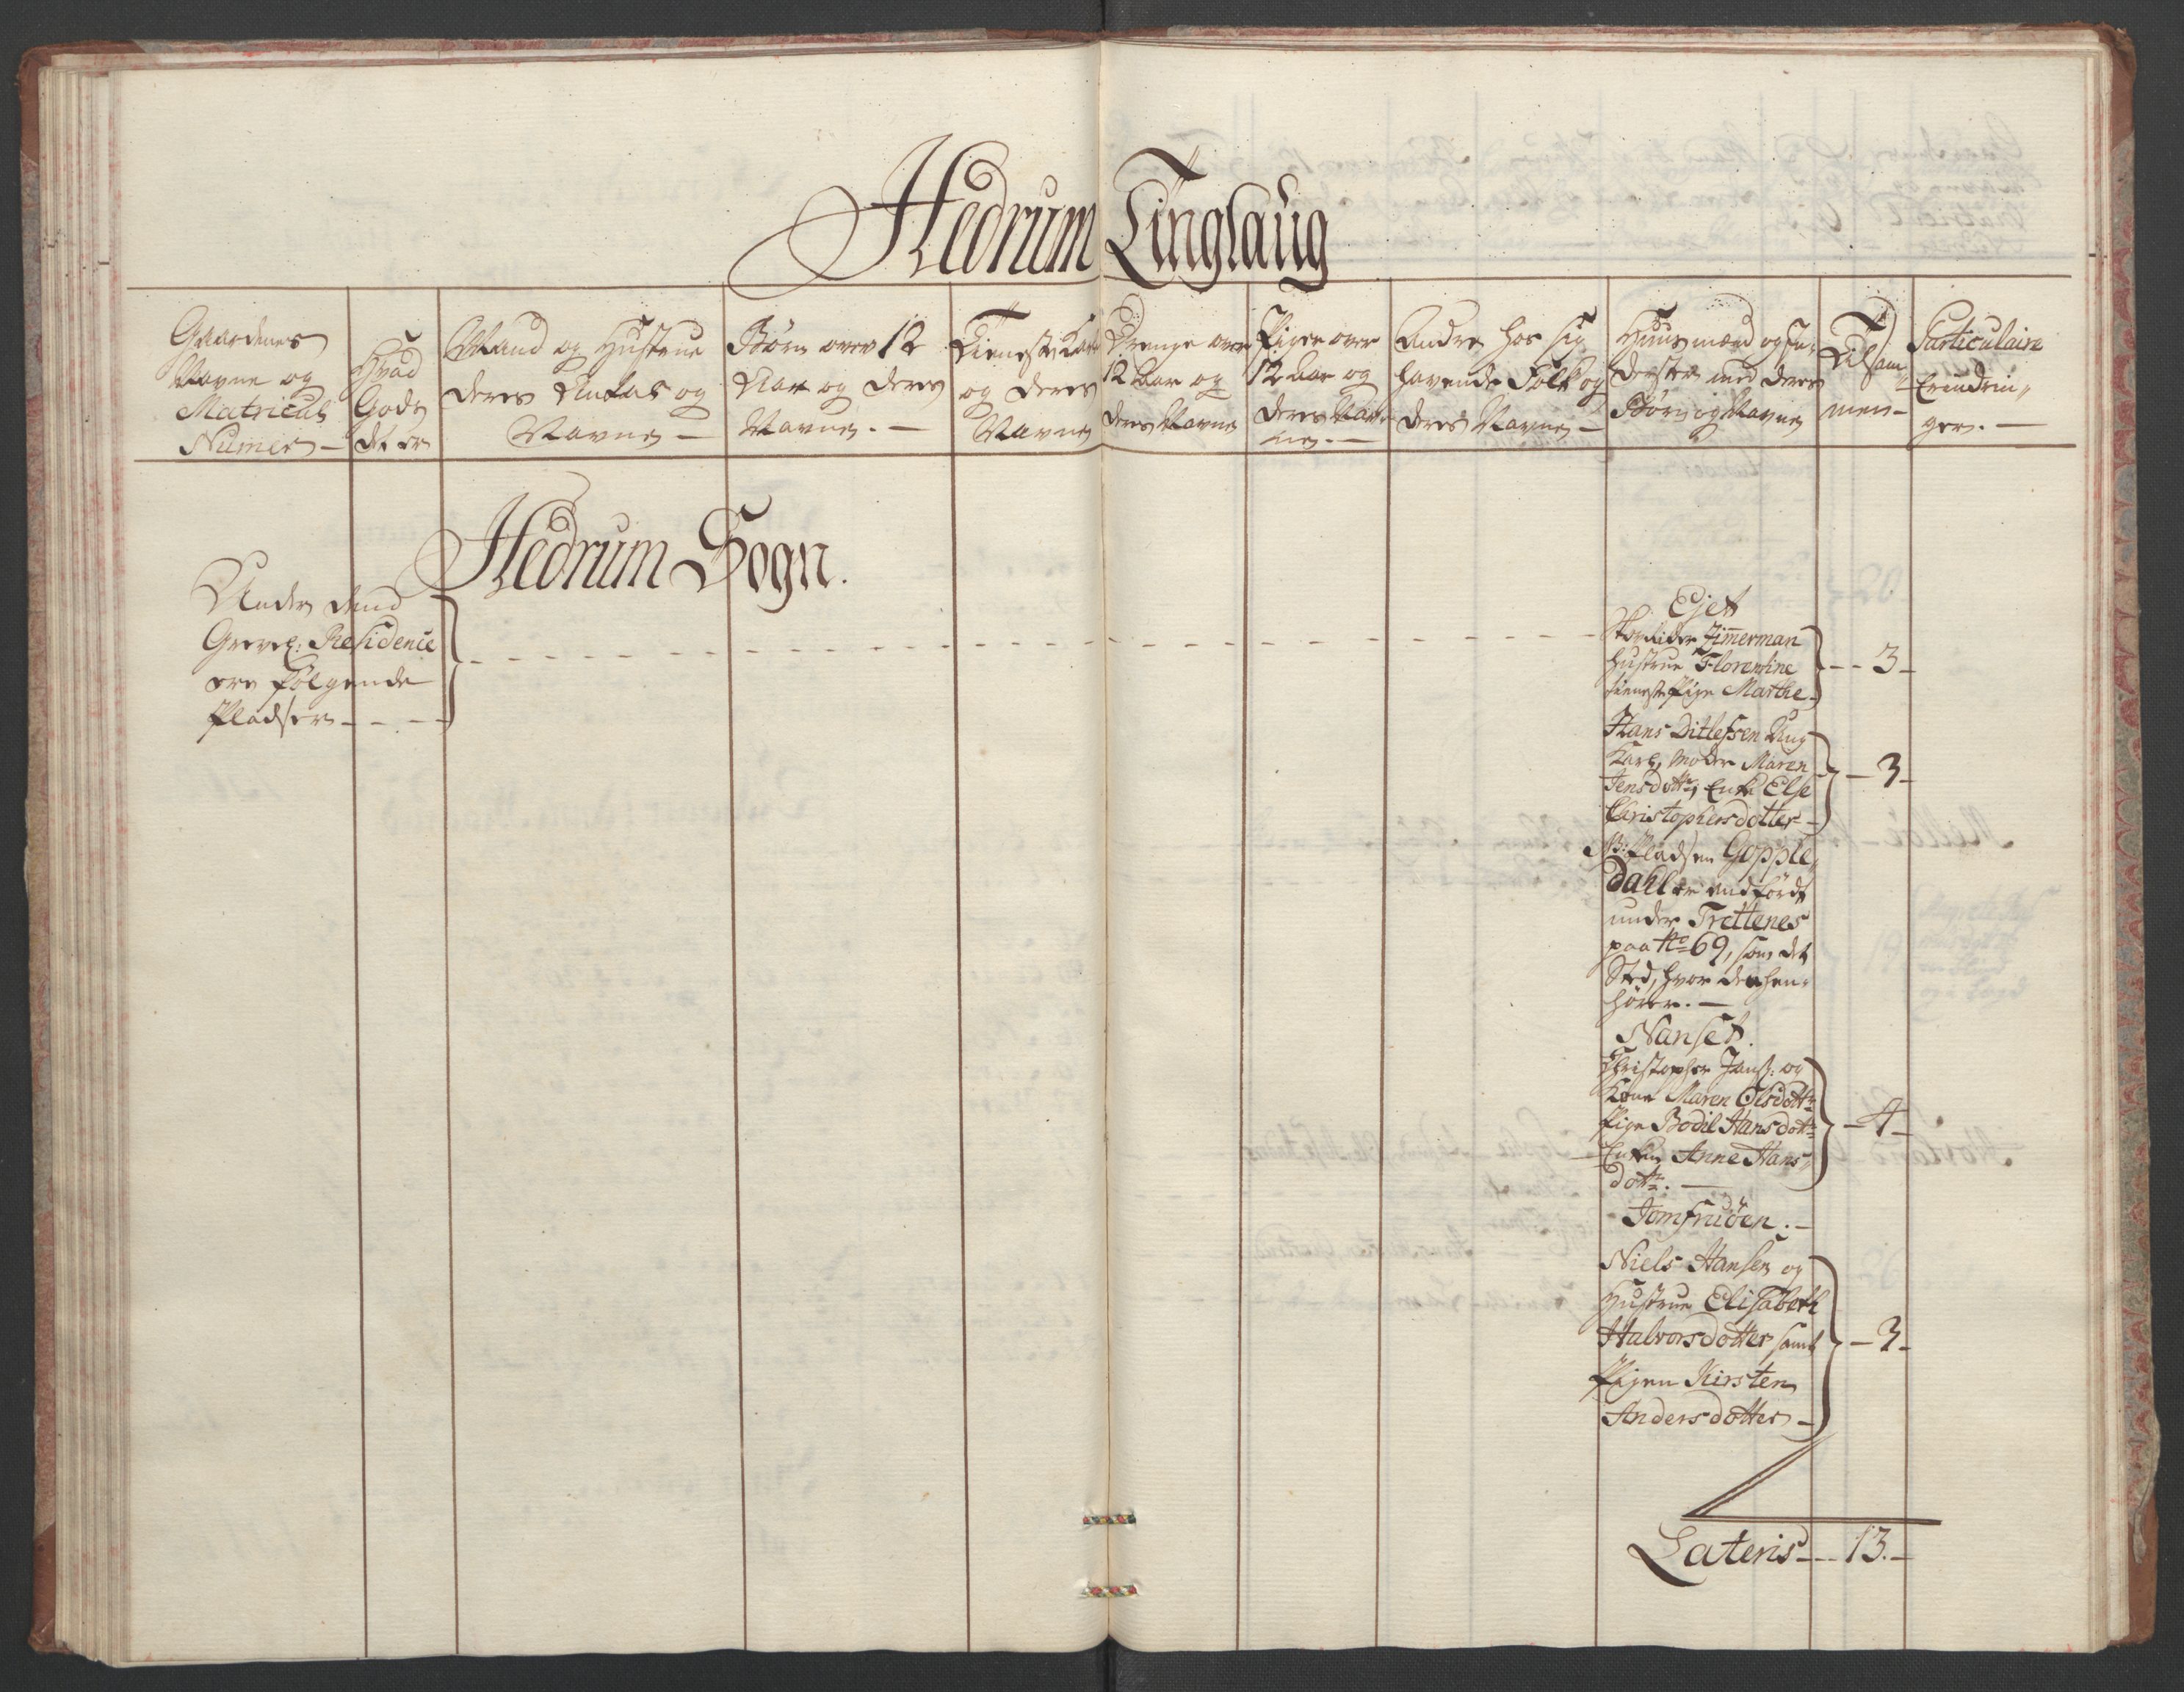 Hedrum Tinglaug
Gaardenes
Navne og
Matriculs
Numer
Hvad
Gods
det er
Mand og Hustrue
deres Antal og
Navne
Børn over 12
Aar og deres
Navne.
Tieneste Karle
og deres
Navne
Drenge over
12 Aar og
deres Navne
Piger over
12 Aar og
deres Nav-
ne.
Andre hos sig
havende Folk og
deres Navne
Huusmænd og In-
derster med deres
Børn og Navne
Tilsam
men
Particulaire
Erindrin,,
ger.
Hedrum Sogn.
Under dend
Grevel: Residence
ere følgende
Pladser
Ejet
Zimerman
Hustrue Florentine
tieneste Pige Marthe
3
Hans Ditlefsen Ung
Karl, Moder Maren
Jensdotter, Enke Else
Christophersdotter
3
NB: Pladsen Gopple,,
Dahl er andførdt
under Trettenes
paa No 69, som det
Sted, hvor den hen-
hører.
Nanset.
Christopher Jans: og
Kone Maren Olsdottr
Pige Bodil Hansdottr
Enken Anne Hans,,
dottr.
4
Jomfruöen.
Niels Hansen og
Hustrue Elisabeth
Halvorsdotter samt
Pigen Kirsten
Andersdotter
3
Lateris 13.